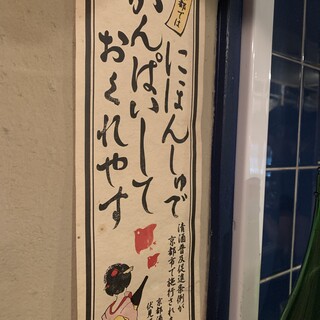 都では
にほんしゅで
かんぱいして
おくれやす
清酒普及促進条例が
京都市で施行され
京都酒
伏見